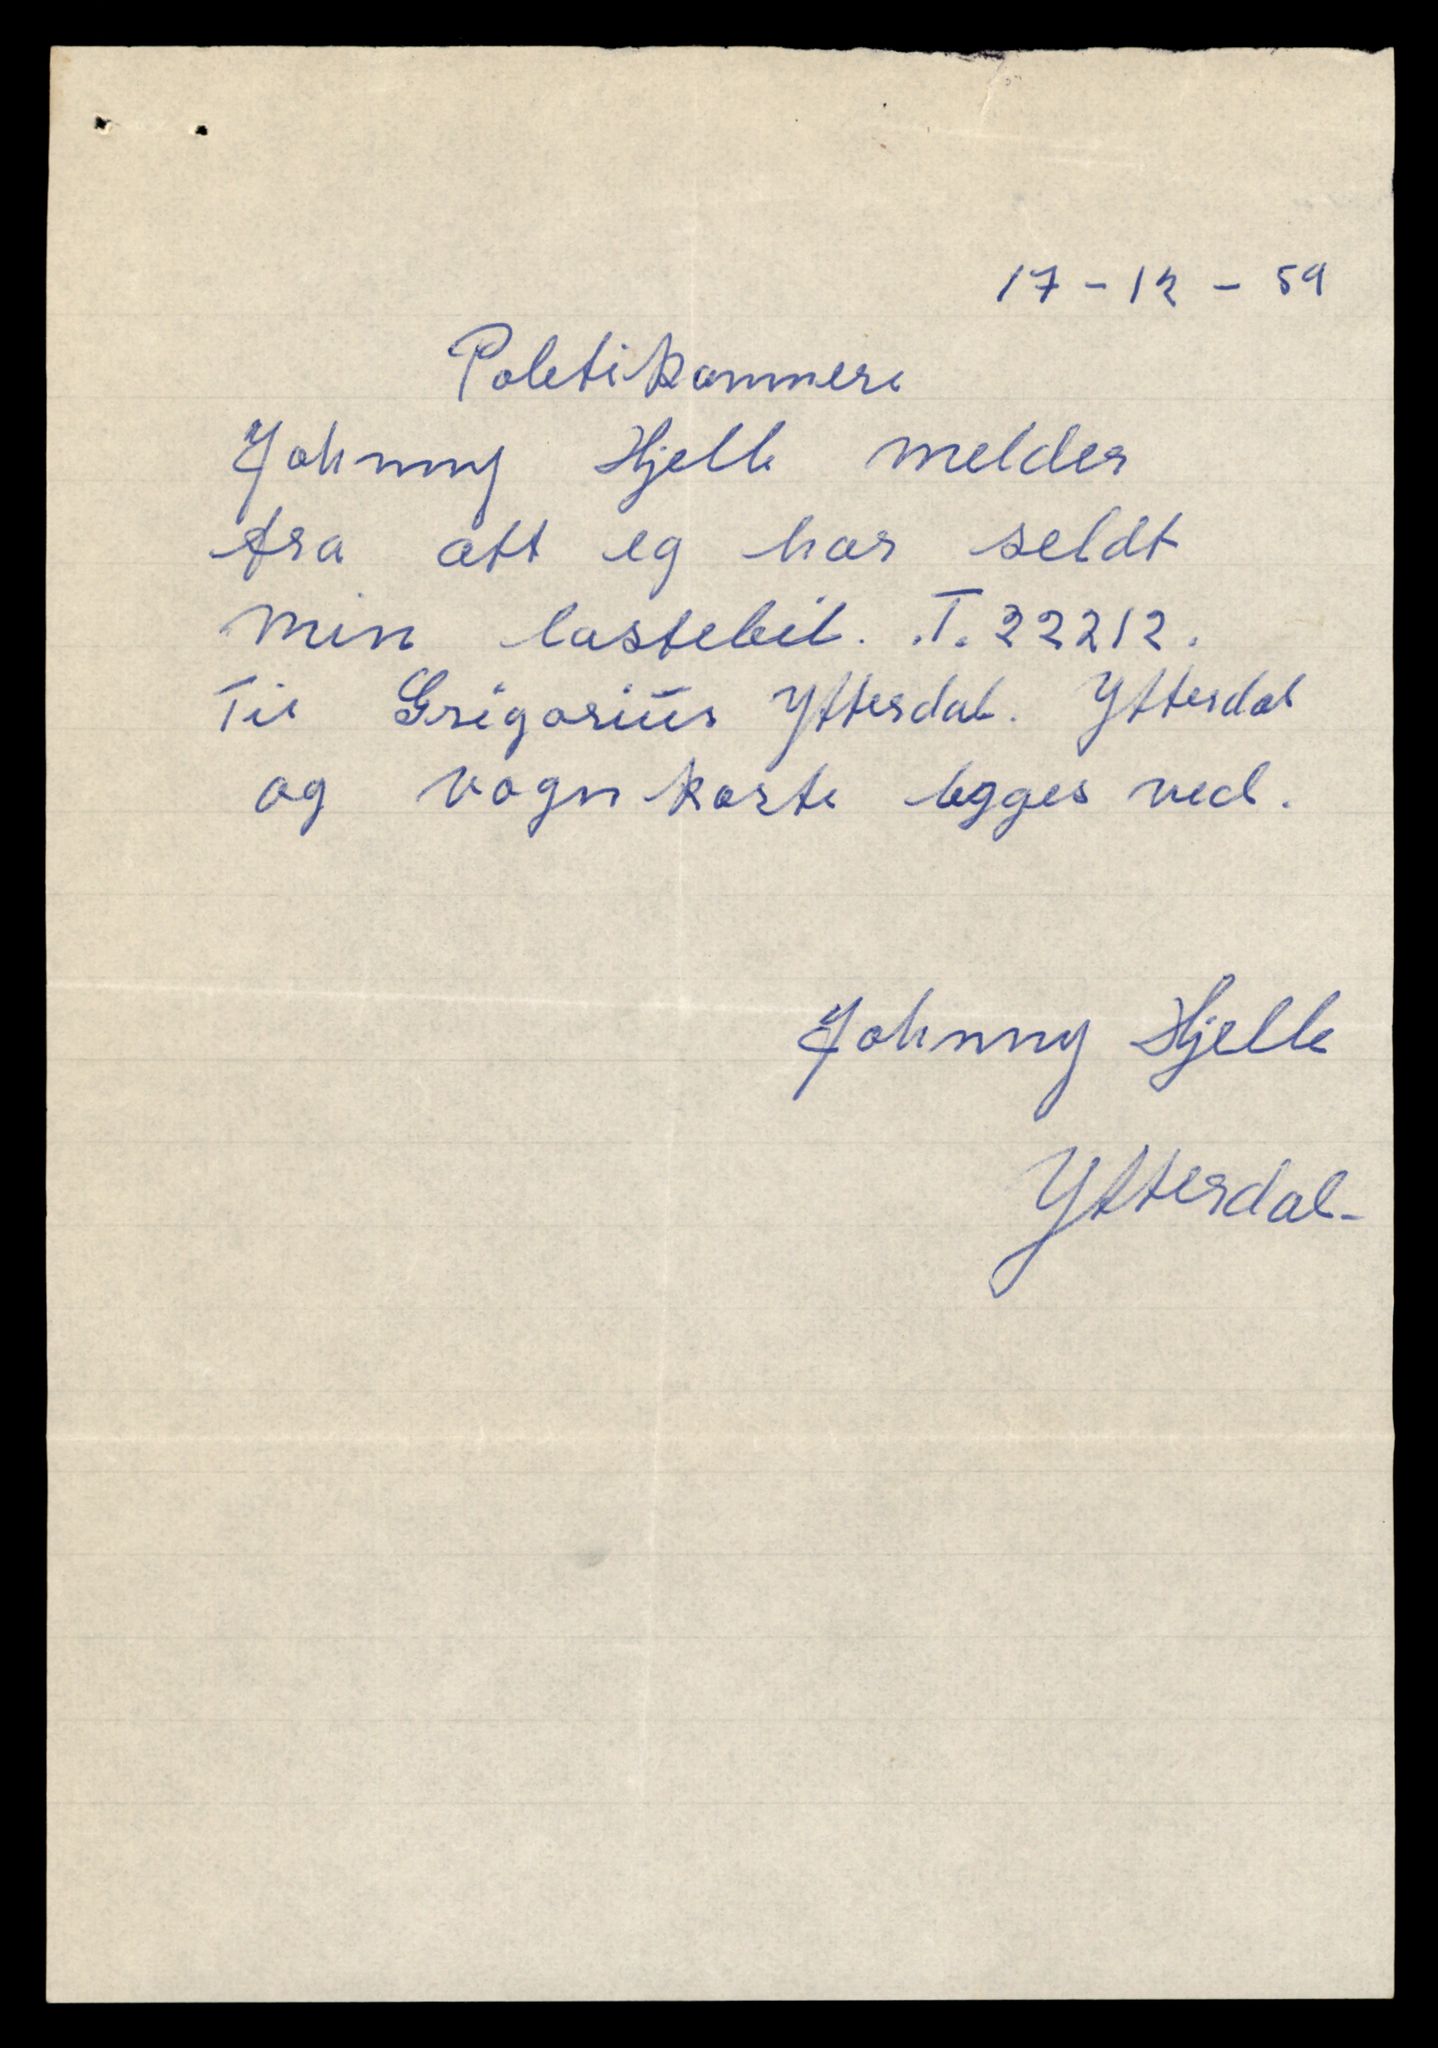 17 - 12 - 59
Poletikammere
Johnny Hjelle melder
fra att eg har seldt
min lastebil. .T. 22212.
Til Grigoriús Ytterdal. Ytterdal
og vognkorte legges ved.
Johnny Hjelle
Ytterdal-